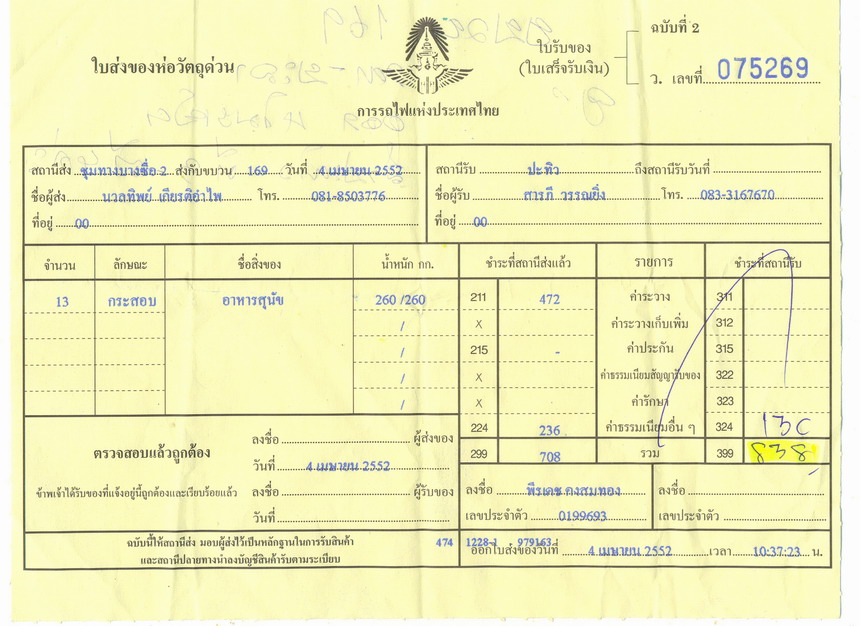 ฉบับที่ 2
ใบส่งของห่อวัตถุด่วน
ใบรับของ
(ใบเสร็จรับเงิน)
ว. เลขที่ 075269
การรถไฟแห่งประเทศไทย
สถานีส่ง ชุมทางบางซื่อ 2 ส่งกับขบวน 169 วันที่ 4 เมษายน 2552
ชื่อผู้ส่ง นวลทิพย์ เกียรติอำไพ โทร. 081-8503776
ที่อยู่ 00
สถานีรับ ปะทิว ถึงสถานีรับวันที่
ชื่อผู้รับ สารภี วรรณยิ่ง โทร. 083-3167670
ที่อยู่ 00
จำนวน ลักษณะ ชื่อสิ่งของ น้ำหนัก กก. ชำระที่สถานีส่งแล้ว รายการ ชำระที่สถานีรับ
13 กระสอบ อาหารสุนัข 260 /260 211 472 ค่าระวาง 311
/ X ค่าระวางเก็บเพิ่ม 312
/ 215 - ค่าประกัน 315
/ X ค่าธรรมเนียมสัญญารับของ 322
/ X ค่ารักษา 323
224 236 ค่าธรรมเนียมอื่น ๆ 324 130
299 708 รวม 399 838
ตรวจสอบแล้วถูกต้อง
ข้าพเจ้าได้รับของที่แจ้งอยู่นี้ถูกต้องและเรียบร้อยแล้ว
ลงชื่อ ผู้ส่งของ
วันที่ 4 เมษายน 2552
ลงชื่อ ผู้รับของ
วันที่
ลงชื่อ พีรเดช คงสมทอง
เลขประจำตัว 0199693
ลงชื่อ
เลขประจำตัว
ฉบับนี้ให้สถานีส่ง มอบผู้ส่งไว้เป็นหลักฐานในการรับสินค้า
และสถานีปลายทางนำลงบัญชีสินค้ารับตามระเบียบ
474 1228-1 979163
ออกใบส่งของวันที่ 4 เมษายน 2552 เวลา 10:37:23 น.